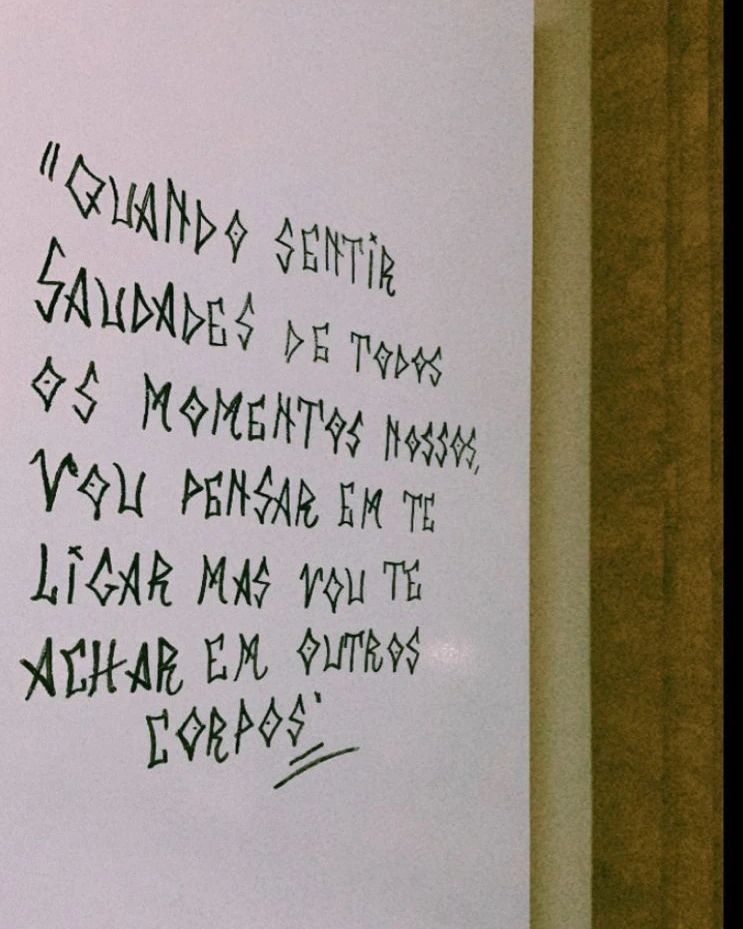 "QUANDO SENTIR
SAUDADES DE TODOS
OS MOMENTOS NOSSOS,
VOU PENSAR EM TE
LIGAR MAS VOU TE
ACHAR EM OUTROS
CORPOS'